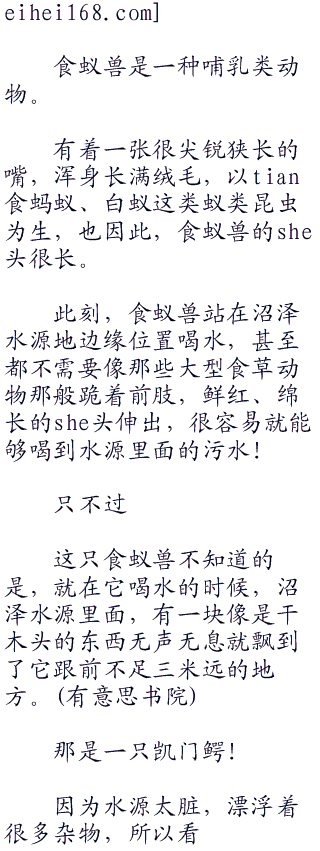 eihei168.com]
食蚁兽是一种哺乳类动
物。
有着一张很尖锐狭长的
嘴，浑身长满绒毛，以tian
食蚂蚁、白蚁这类蚁类昆虫
为生，也因此，食蚁兽的she
头很长。
此刻，食蚁兽站在沼泽
水源地边缘位置喝水，甚至
都不需要像那些大型食草动
物那般跪着前肢，鲜红、绵
长的she头伸出，很容易就能
够喝到水源里面的污水！
只不过
这只食蚁兽不知道的
是，就在它喝水的时候，沼
泽水源里面，有一块像是干
木头的东西无声无息就飘到
了它跟前不足三米远的地
方。(有意思书院)
那是一只凯门鳄！
因为水源太脏，漂浮着
很多杂物，所以看